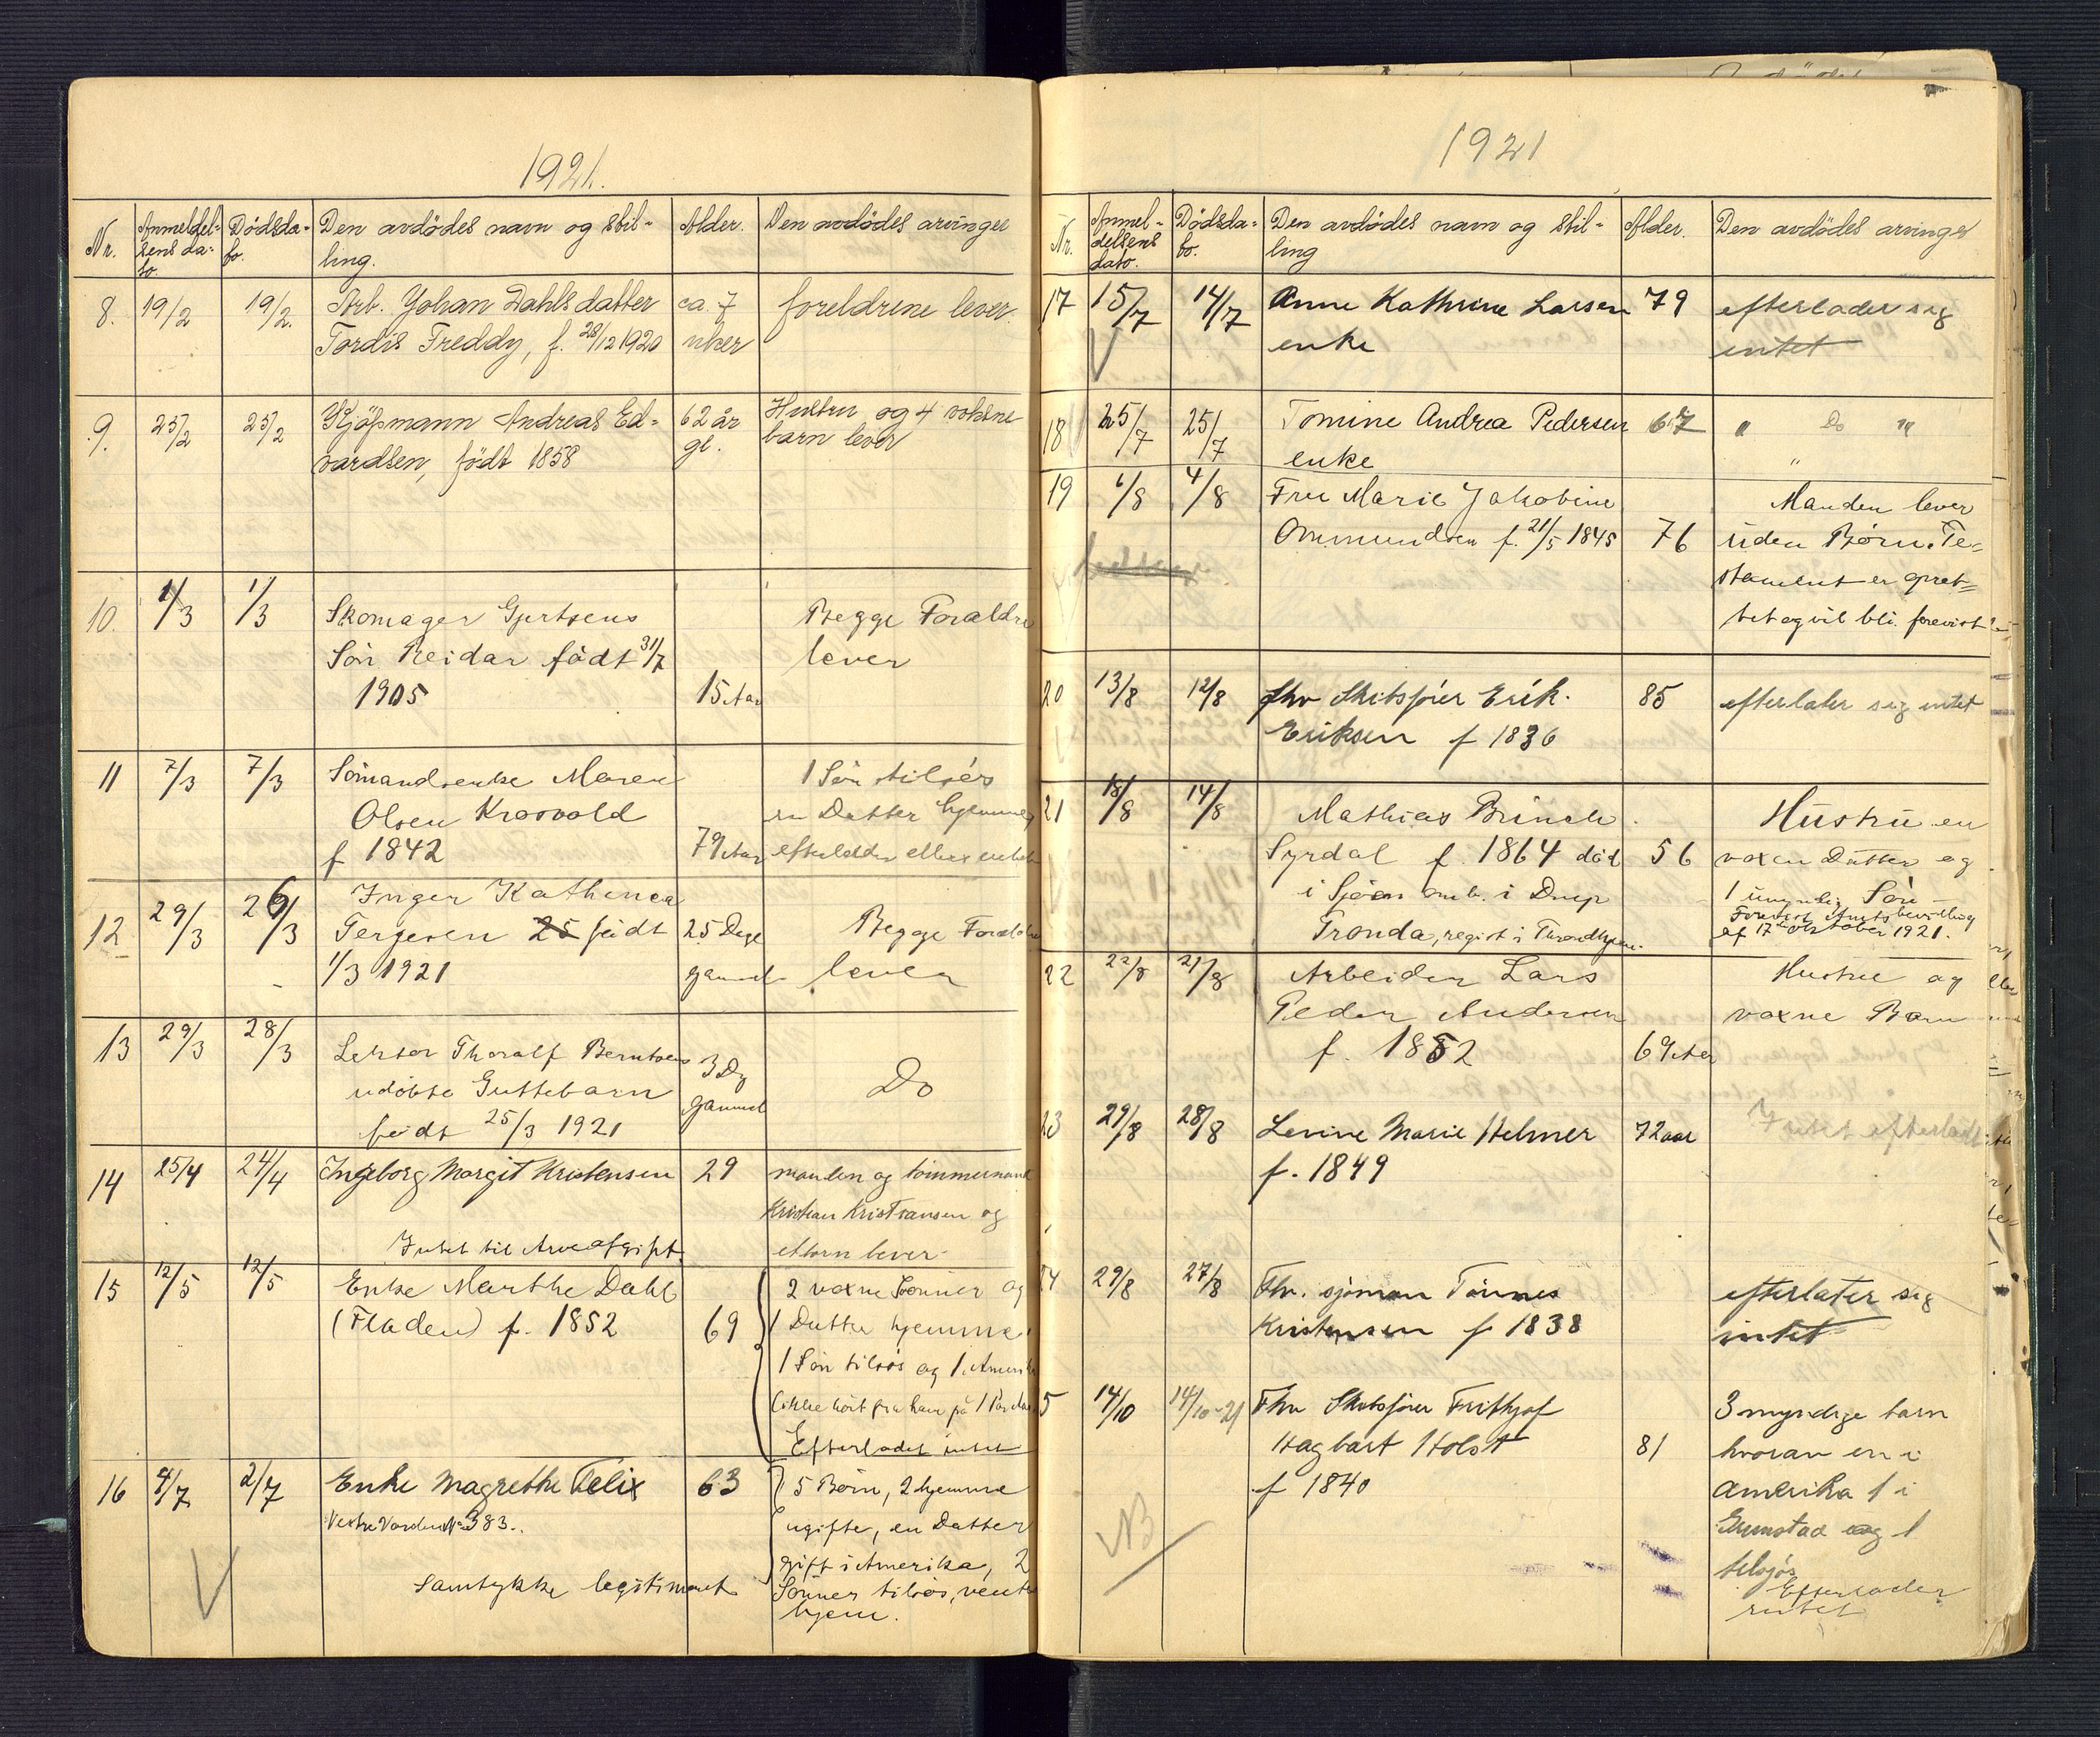 1921.
Nr.
Anmeldel-
sens da-
to.
Dödsda-
to.
Den avdödes navn og stil-
ling.
Alder.
Den avdödes arvinger
8.
19/2
19/2.
Arb. Johan Dahls datter
Tordis Freddy, f. 28/12 1920
ca. 7
uker
foreldrene lever.
9.
25/2
25/2
Kjöpmann Andreas Ed-
vardsen, födt 1858
62 år
gl.
Hustru og 4 voksne
barn lever
10.
1/3
1/3
Skomager Gjertsens
Sön Reidar födt 31/7
1905
15 Aar
Begge Forældre
lever
11
7/3
7/3
Sömandsenke Maren
Olsen Krosvold
f 1842
79 Aar
1 Sön tilsös
en Datter hjemme,
12
29/3
26/3
Inger Kathinca
Tergesen födt
1/3 1921
25 Dage
gammel
Begge Forældre
lever
13
29/3
28/3
Lektor Thoralf Berntsens
udöbte Guttebarn
födt 25/3 1921
3 Dg
gammel
Do
14
25/4
24/4
Ingeborg Margit Kristensen
Intet til Arveafgift
29
manden og tömmermand
Kristian Kristiansen og
et barn lever
15
12/5
12/5
Enke Marthe Dahl
(Fladen) f. 1852
69
2 voxne Sönner og
1 Datter hjemme
1 Sön tilsös og 1 i Amerika
(ikke hört fra ham på
Efterladt intet
16
4/7
2/7
Enke Magrethe Felix
Vestre Varden No 383.
Samtykke legitimert
63
5 Börn, 2 hjemme
ugifte, en Datter
gift i Amerika, 2
Sönner tilsös, vente
hjem.
1921
Nr.
Anmel-
delsens
dato.
Dödsda-
to.
Den avdödes navn og stil-
ling
Alder.
Den avdödes arvinger
17
15/7
14/7
Anne Kathrine Larsen
enke
79
efterlader sig
intet
18
25/7
25/7
Tomine Andrea Pedersen
enke
67
" Do "
"
19
6/8
4/8
Fru Marie Jakobine
Ommundsen f. 21/5 1845
76
Manden lever
uden Börn. Te-
stament er opret-
tet og vil bli forevist
20
13/8
12/8
fhv Skibsförer Erik
Eriksen f 1836
85
efterlater sig intet
21
18/8
14/8
Mathias Brinch
Syrdal f. 1864 död
i Sjöen omb. i Dmp
Tronda, regist i Throndhjem.
56
Hustru en
voxen Datter og
1 umyndig Sön -
Forevist Amtsbevilling
af 17de Oktober 1921.
22
22/8
21/8
Arbeider Lars
Peder Andersen
f. 1852
69 Aar
Hustru og
voxne Barn
23
29/8
28/8
Levine Marie Helmer
f. 1849
72 aar
Intet efterladt
24
29/8
27/8
Fhv. sjöman Tönnes
Kristensen f 1838
efterlater sig
intet
5
14/10
14/10-21
Fhv Skibsförer Frithjof
Hagbart Holst
f 1840
NB
81
3 myndige barn
hvorav en i
Amerika 1 i
Grimstad og 1
tilsjös
Efterlader
intet